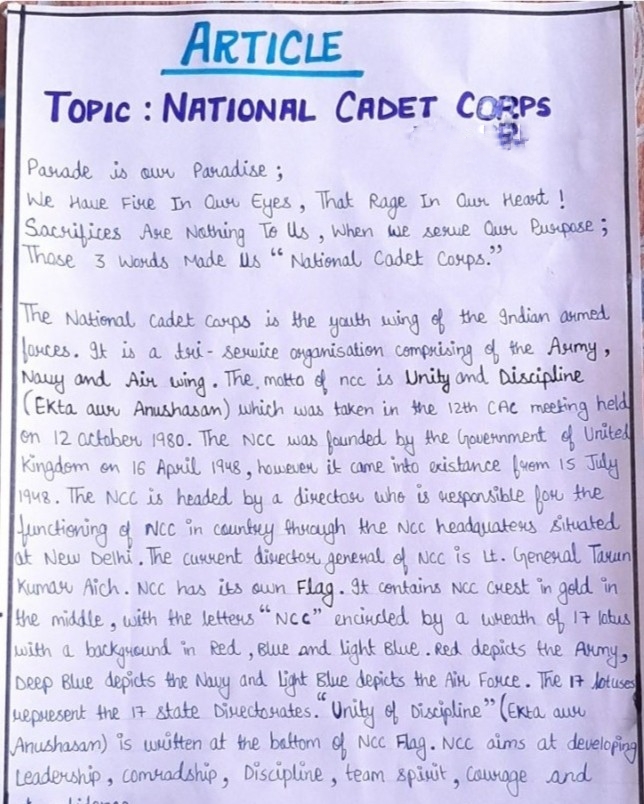 ARTICLE
TOPIC : NATIONAL CADET CORPS
Parade is our Paradise ;
We Have Fire In Our Eyes , That Rage In Our Heart !
Sacrifices Are Nothing To Us , When We serve Our Purpose ;
Those 3 Words Made Us " National Cadet Corps."
The National Cadet Corps is the youth wing of the Indian armed
forces. It is a tri - service organisation comprising of the Army ,
Navy and Air wing . The motto of ncc is Unity and Discipline
(Ekta aur Anushasan) which was taken in the 12th CAC meeting held
on 12 october 1980. The NCC was founded by the Government of United
Kingdom on 16 April 1948 , however it came into existance from 15 July
1948. The NCC is headed by a director who is responsible for the
functioning of NCC in country through the NCC headquaters situated
at New Delhi . The current director general of NCC is Lt. General Tarun
Kumar Aich . NCC has its own Flag . It contains NCC Crest in gold in
the middle , with the letters " NCC" encircled by a wreath of 17 lotus
with a background in Red , Blue and light Blue . Red depicts the Army,
Deep Blue depicts the Navy and light Blue depicts the Air Force . The 17 lotuses
represent the 17 state Directorates. "Unity of Discipline" (Ekta aur
Anushasan) is written at the bottom of NCC Flag . NCC aims at developing
Leadership , comradship , Discipline , team spirit , Courage and